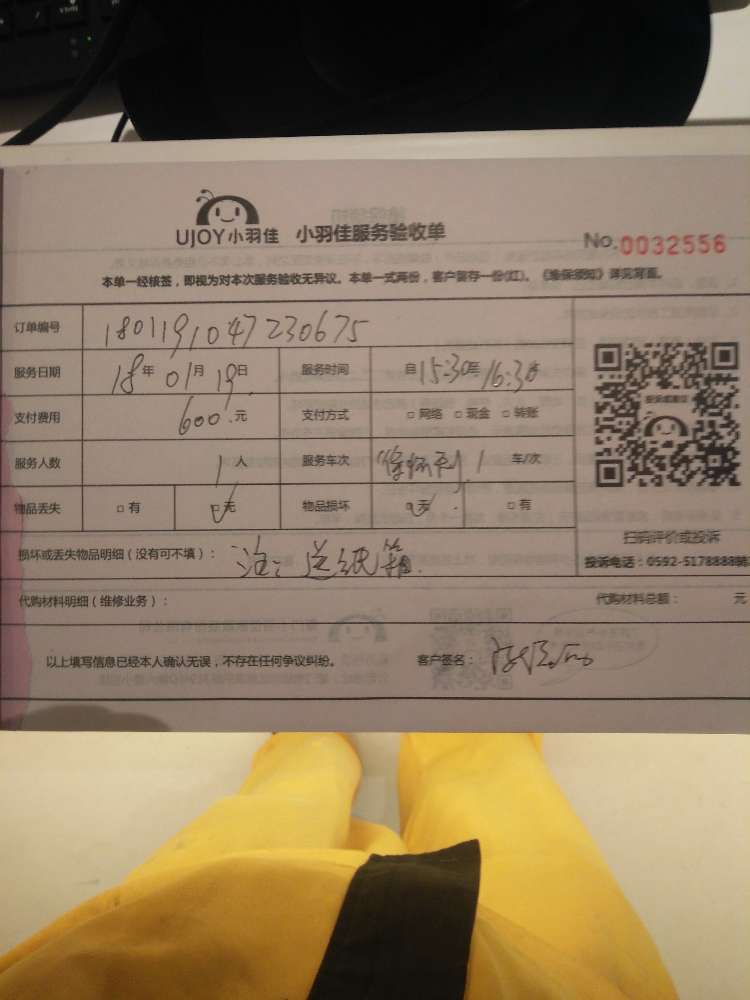 UJOY小羽佳 小羽佳服务验收单 No.0032556
本单一经核签，即视为对本次服务验收无异议。本单一式两份，客户暂存一份(红)。《维保须知》详见背面。
订单编号 1801191047230675
服务日期 18年01月19日 服务时间 自15:30至16:30
支付费用 600.元 支付方式 □网络 □现金 □转账
服务人数 1人 服务车次 1 车/次
物品丢失 □有 □无 物品损坏 □无 □有
扫码评价或投诉
损坏或丢失物品明细（没有可不填）： 注：送纸箱.
投诉电话：0592-5178888转
代购材料明细（维修业务）： 代购材料总额： 元
以上填写信息已经本人确认无误，不存在任何争议纠纷。 客户签名：